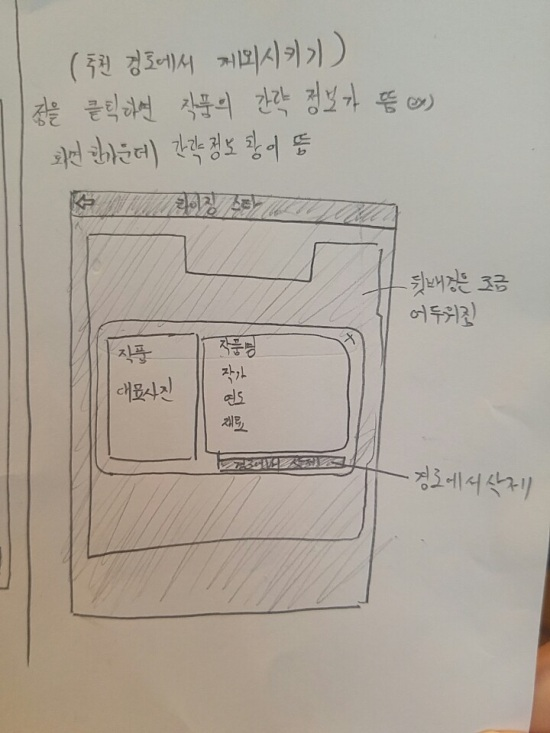 (추천 경로에서 제외시키기)
점을 클릭하면 작품의 간략 정보가 뜸 ex)
화면 한가운데 간략정보 창이 뜸
라이징 스타
뒷배경은 조금
어두워짐
작품
대표사진
작품명
X
작가
연도
재료
경로에서 삭제
경로에서 삭제